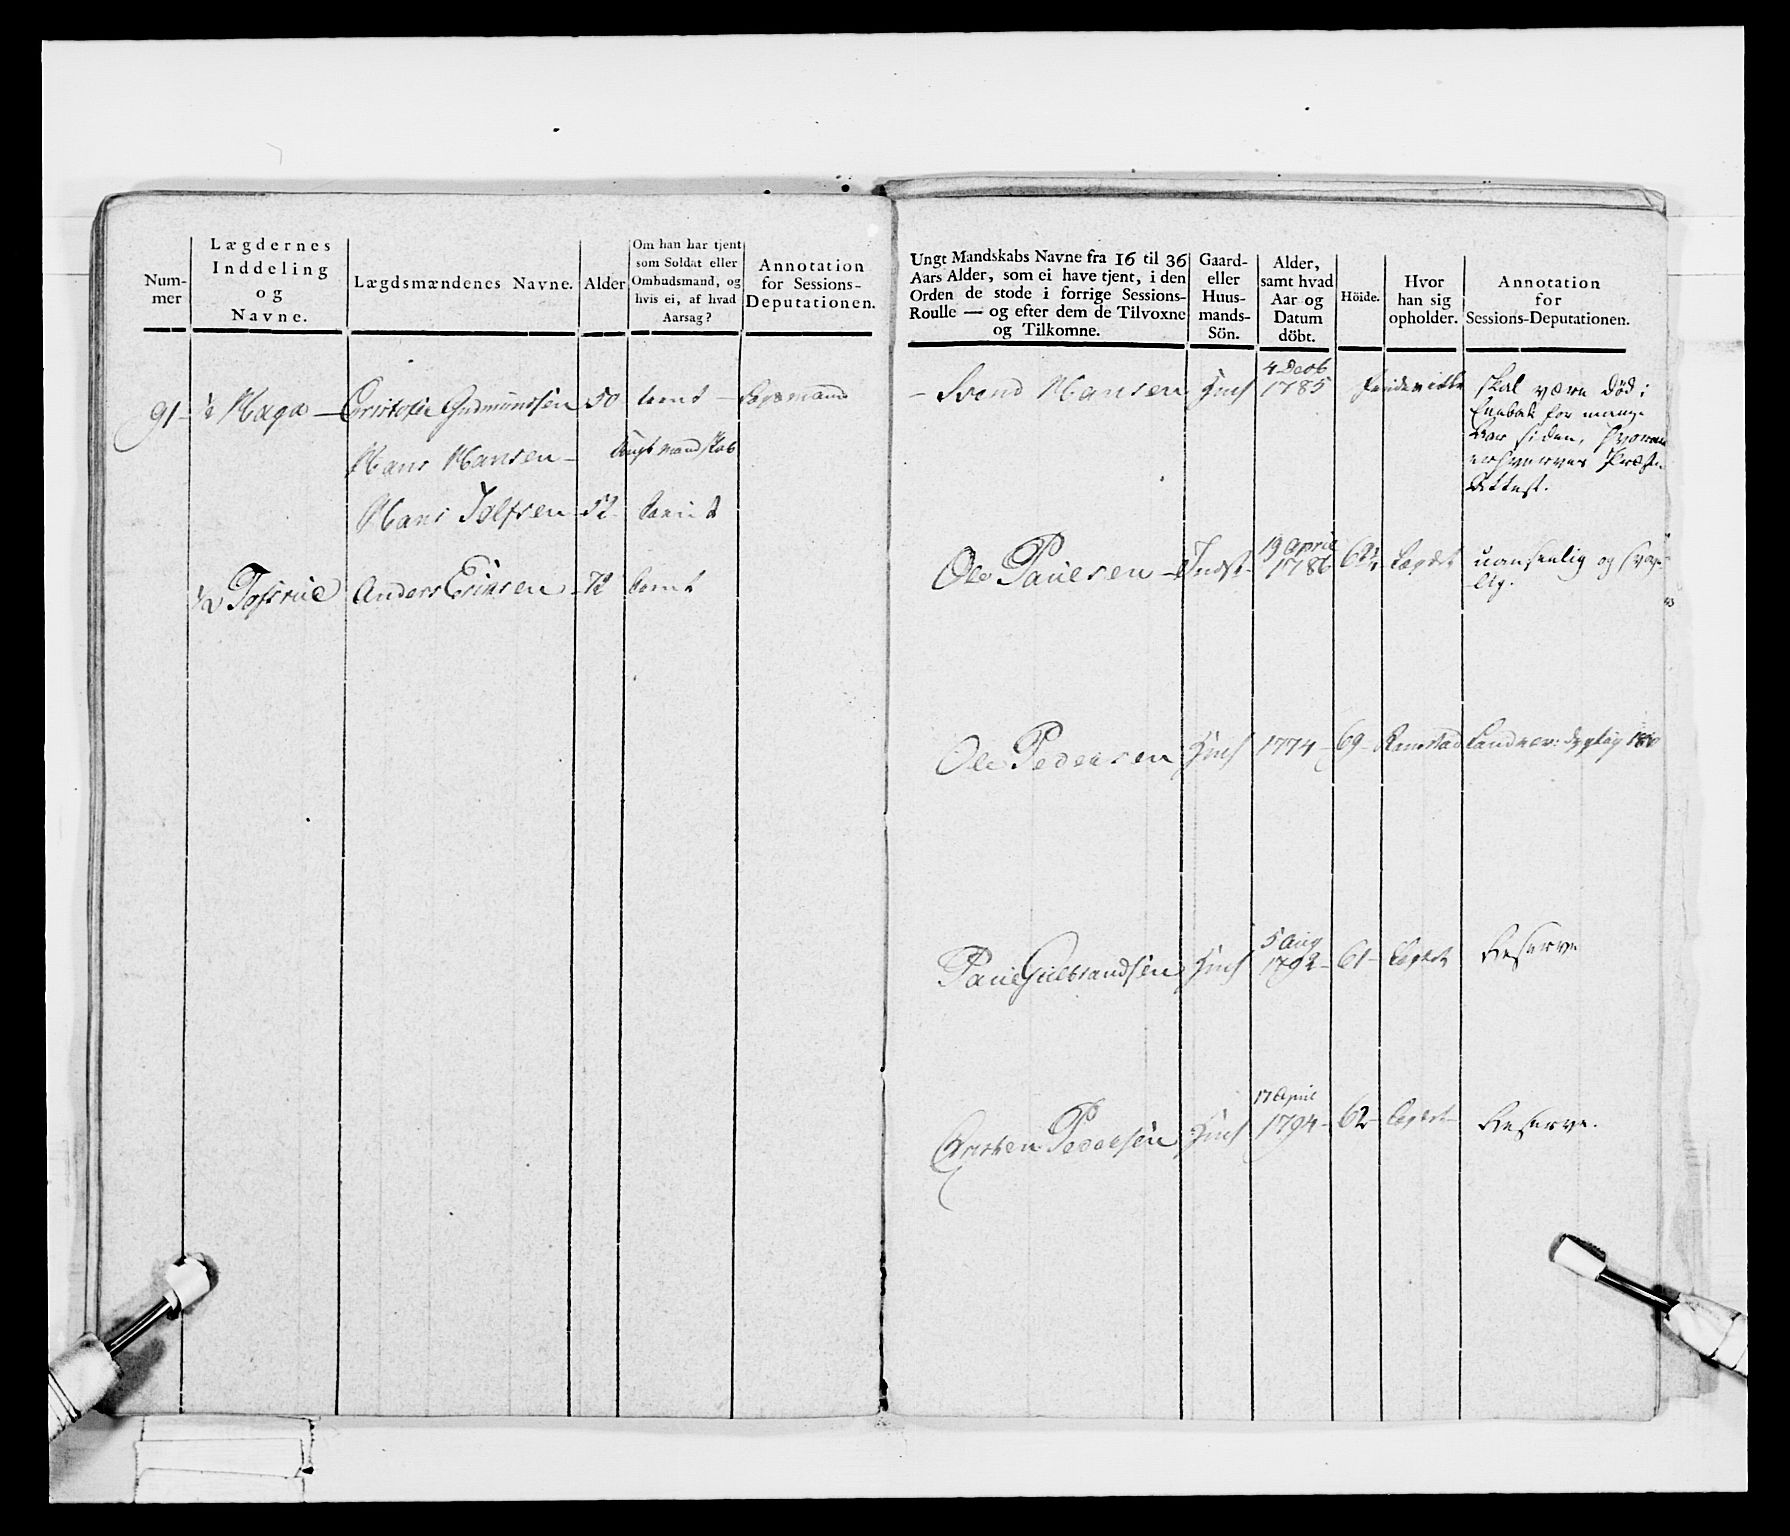 Num-
mer
Lægdernes
Inddeling
og
Navne.
Lægdsmændenes Navne.
Alder
Om han har tjent
som Soldat eller
Ombudsmand, og
hvis ei, af hvad
Aarsag?
Annotation
for Sessions-
Deputationen.
91 - ½ Haga - Cristofer Gudmundsen 50 tient -
Hans Hansen - Ungt mandskab
Hans Tolfsen 52 tient
½ Tofsrud Anders Ericsen 72 tient
Ungt Mandskabs Navne fra 16 til 36
Aars Alder, som ei have tjent, i den
Orden de stode i forrige Sessions-
Roulle — og efter dem de Tilvoxne
og Tilkomne.
Gaard-
eller
Huus-
mands-
Sön.
Alder,
samt hvad
Aar og
Datum
döbt.
Höide.
Hvor
han sig
opholder.
Annotation
for
Sessions-Deputationen.
- Svend Hansen Huus 4 Decb 1785 skal være död i
Enebak for mange
Aar siden, hvorom
erhverves Præste
Attest.
Ole Paulsen - Indst. 19 April 1786 62½ Lægdet uanseelig og svage-
lig.
Ole Pedersen Huus 1774 - 69 - Ramstad Landvær: dygtig
Paul Gulbrandsen Huus 5 Aug 1792 - 61 - Lægdet Reserve
Cristen Pedersen Huus 17 April 1794 - 62 - Lægdet - Reserve.